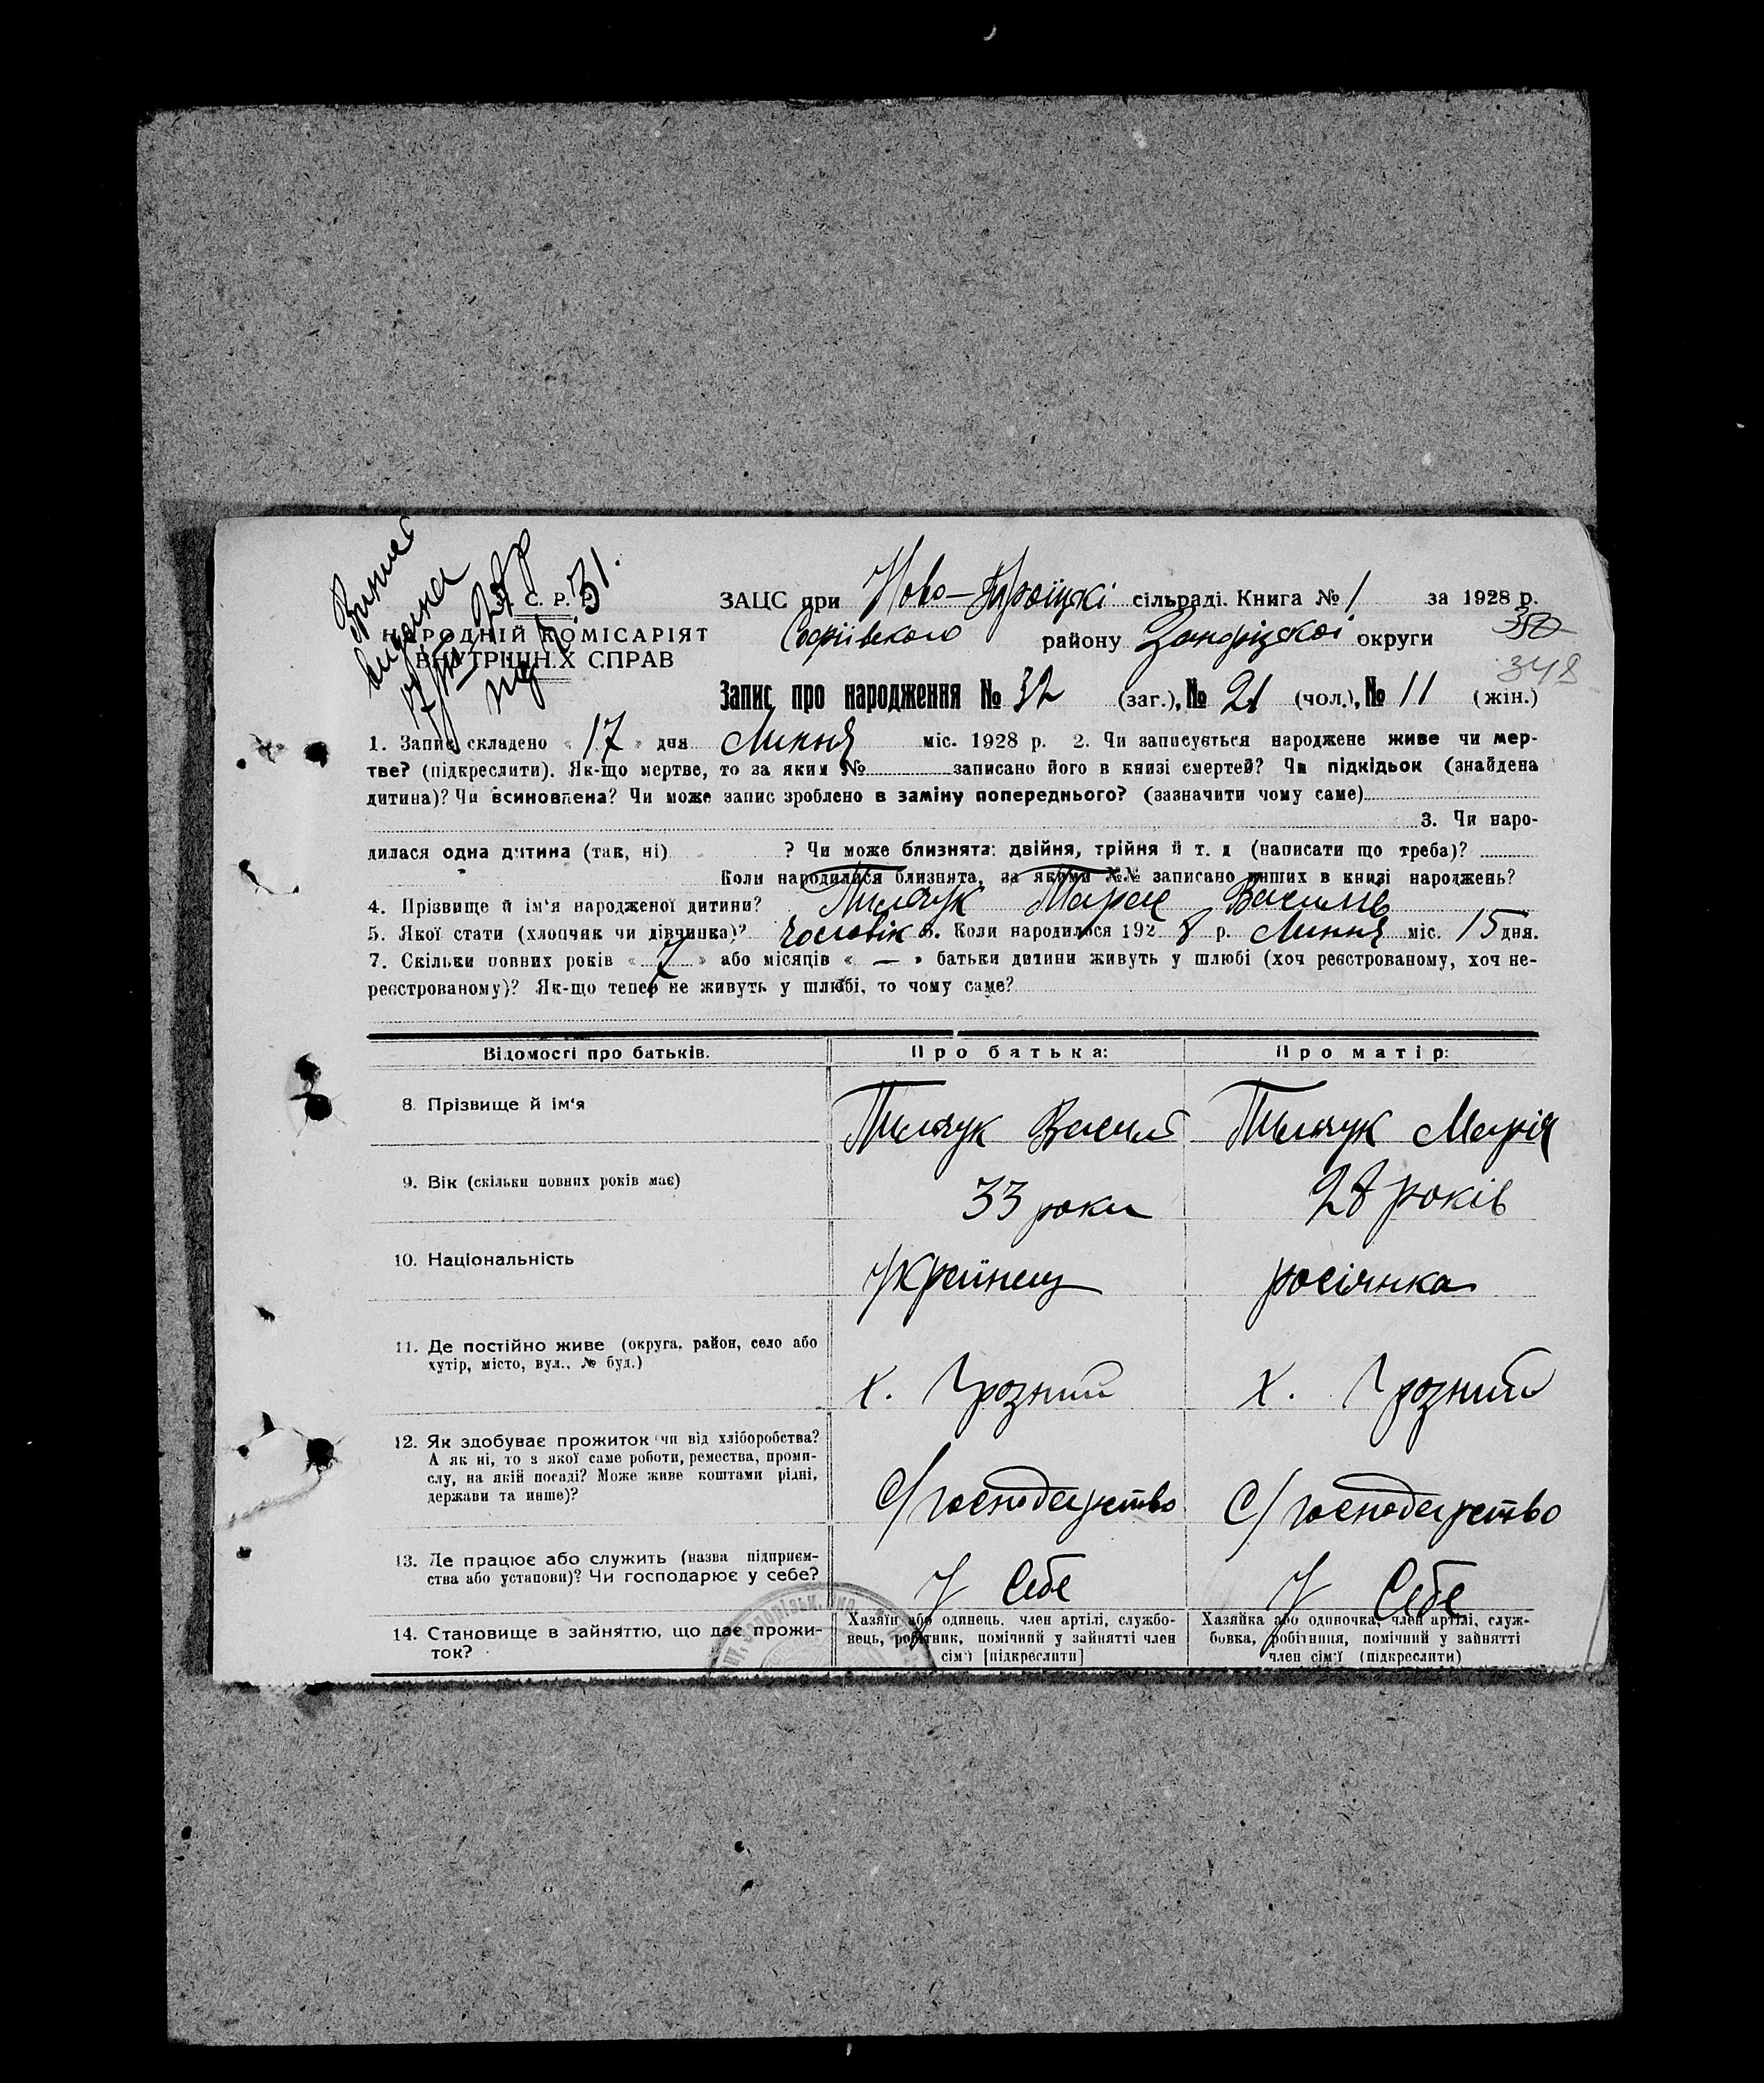 У. С. Р. Р.
НАРОДНІЙ КОМІСАРІЯТ
ВНУТРІШН.Х СПРАВ
Випис
видана
№ 31.
ЗАЦС при Ново-Троїцкі сільраді. Книга № 1 за 1928 р.
Софіївского району Запорізskoї округи
350
348
Запис про народження № 32 (заг.), № 21 (чол.), № 11 (жін.)
1. Запис складено « 17 » дня Липня міс. 1928 р. 2. Чи записується народжене живе чи мер-
тве? (підкреслити). Як-що мертве, то за яким № записано його в книзі смертей? Чи підкідьок (знайдена
дитина)? Чи всиновлена? Чи може запис зроблено в заміну попереднього? (зазначити чому саме)
3. Чи наро-
дилася одна дитина (так, ні) ? Чи може близнята: двійня, трійня й т. д (написати що треба)?
Коли народилися близнята, за якими №№ записано инших в книзі народжень?
4. Прізвище й ім'я народженої дитини? Пилчук Марк Василів
5. Якої стати (хлопчик чи дівчинка)? чоловік 6. Коли народилося 192 8 р. Липня міс. 15 дня.
7. Скільки повних років « 7 » або місяців « — » батьки дитини живуть у шлюбі (хоч реєстрованому, хоч не-
реєстрованому)? Як-що тепер не живуть у шлюбі, то чому саме?
Відомості про батьків. Про батька: Про матір:
8. Прізвище й ім'я Пилчук Васил Пилчук Марія
9. Вік (скільки повних років має) 33 роки 28 років
10. Національність Українец росіянка
11. Де постійно живе (округа, район, село або
хутір, місто, вул., № буд.) х. Грозний х. Грозний
12. Як здобуває прожиток чи від хліборобства?
А як ні, то з якої саме роботи, ремества, проми-
слу, на якій посаді? Може живе коштами рідні,
держави та инше)? С/господарство С/господарство
13. Де працює або служить (назва підприєм-
ства або установи)? Чи господарює у себе? У Себе У Себе
14. Становище в зайняттю, що дає прожи-
ток?
Хазяїн або одинець, член артілі, службо-
вець, робітник, помічний у зайнятті член
сім'ї [підкреслити]
Хазяйка або одиночка, член артілі, служ-
бовка, робітниця, помічний у зайнятті
член сім'ї (підкреслити)